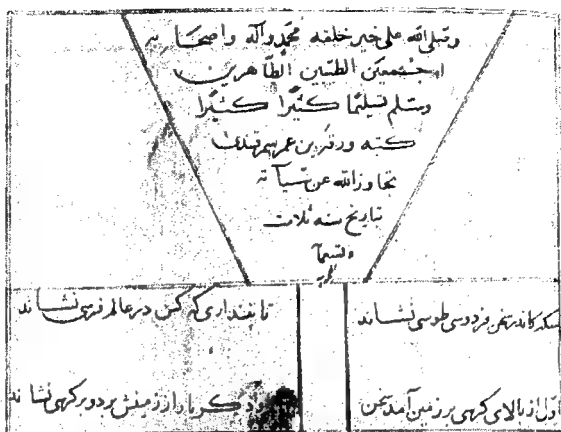 وصلى الله على خير خلقه محمد وآله واصحابه
اجمعين الطيبين الطاهرين
وسلم تسليما كثيرا كثيرا
كتبه ورقه بن عمر سمرقندى
تجاوز الله عن سيآته
بتاريخ سنه ثلاث
وتسعمايه
سكه كاندر سخن فردوسى طوسى نشاند
تا نپندارى كه كس در عالم فرسى نشاند
اول از بالاى كرسى بر زمين آمد سخن
ديكر بار از زمينش برد و بر كرسى نشاند